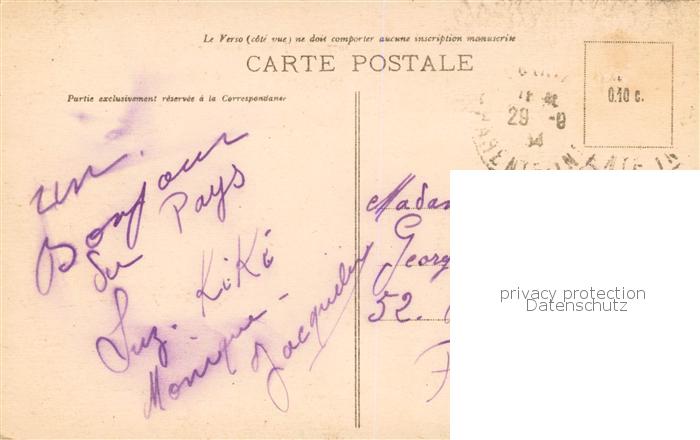 Le Verso (côté vue) ne doit comporter aucune inscription manuscrite
CARTE POSTALE
Partie exclusivement réservée à la Correspondance
0.10 c.
29 -9
34
un
Bonjour
du Pays
Suz. KiKi
Monique -
Jacqueline
Madam
Georg
52.
privacy protection
Datenschutz